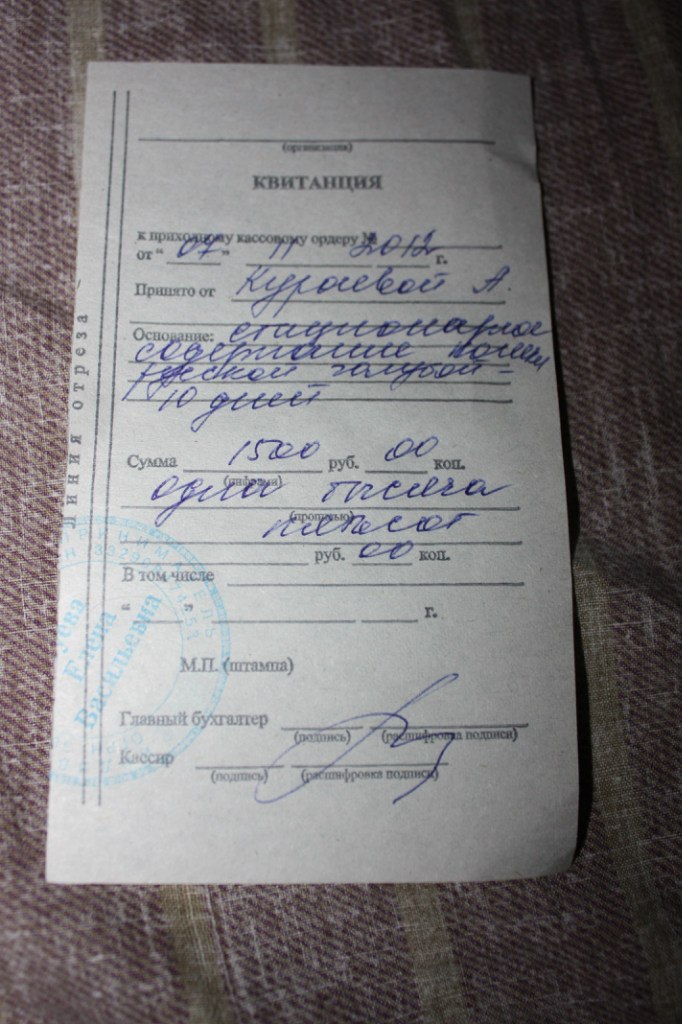 (организация)
КВИТАНЦИЯ
к приходному кассовому ордеру №
от " 07 " 11 2012 г.
Принято от Кураевой А.
Основание: стационарное
содержание кошки
русской голубой -
10 дней
Сумма 1500 руб. 00 коп.
(цифрами)
одна тысяча
(прописью)
пятьсот
руб. 00 коп.
В том числе
" " г.
М.П. (штампа)
Главный бухгалтер
(подпись) (расшифровка подписи)
Кассир
(подпись) (расшифровка подписи)
Линия отреза
Елена
Васильевна